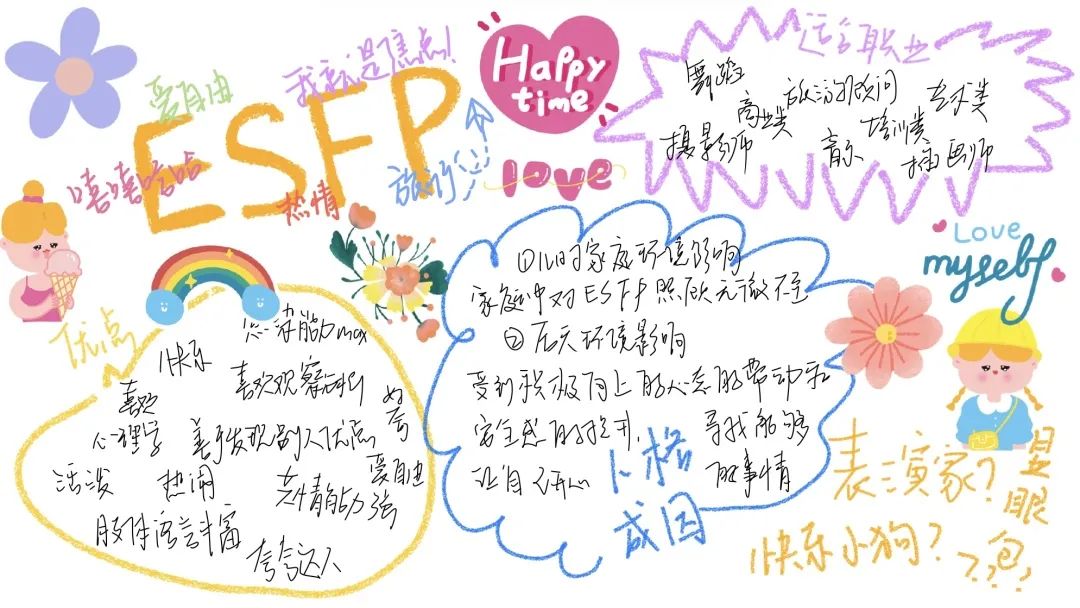 爱自由
我就是焦点!
ESFP
嘻嘻哈哈
热情
旅行
Happy
time
love
适合职业
舞蹈
旅游顾问
艺术类
商业类
培训类
摄影师
音乐
插画师
Love
myself
优点
快乐
能力max
喜欢观察
喜欢
心理学
善于发现别人优点
活泼
热闹
共情能力强
爱自由
肢体语言丰富
夸夸达人
①儿时家庭环境影响
家庭中对ESFP照顾无微不至
②后天环境影响
受到积极向上的心态的带动和
安全感的提升,
寻找能够
让自己开心
的事情
人格
成因
表演家?
显眼包
快乐小狗?